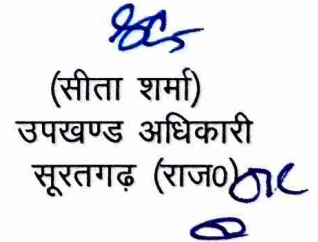 (सीता शर्मा)
उपखण्ड अधिकारी
सूरतगढ़ (राज0)